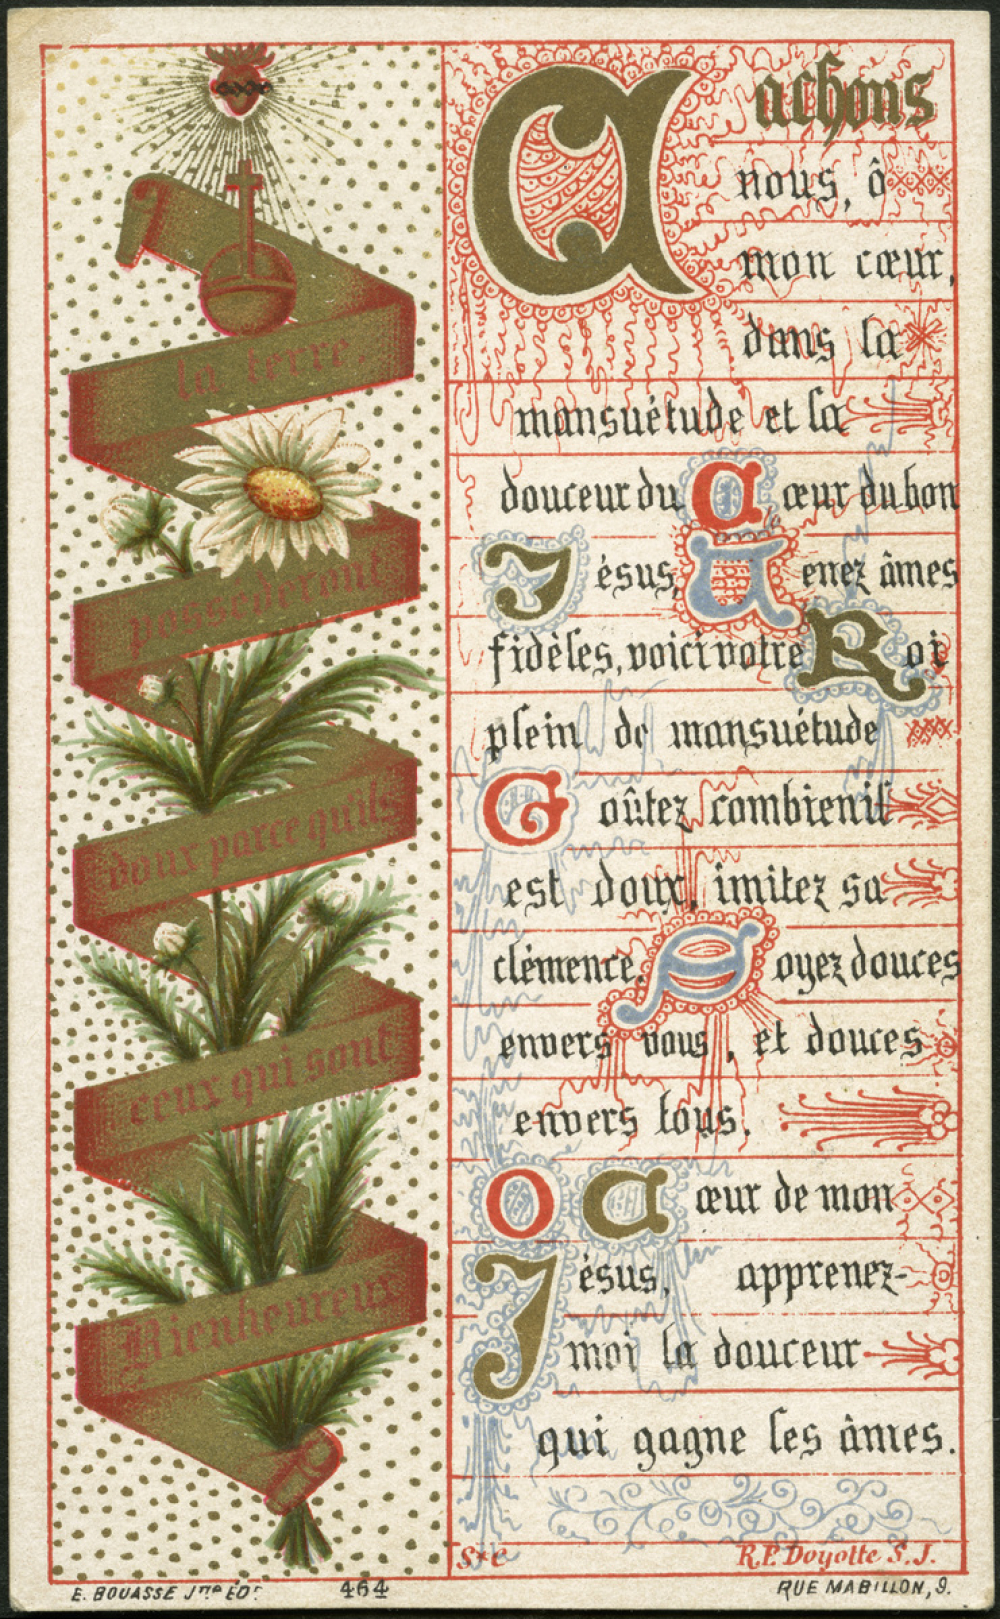 la terre.
possederont
doux parce qu'ils
ceux qui sont
Bienheureux
Cachons
nous, ô
mon cœur,
dans la
mansuétude et la
douceur du Cœur du bon
Jésus, Venez âmes
fidèles, voici votre Roi
plein de mansuétude
Goûtez combien il
est doux, imitez sa
clémence. Soyez douces
envers vous, et douces
envers tous.
O Cœur de mon
Jésus, apprenez-
moi la douceur
qui gagne les âmes.
S*C
R.P. Doyotte S.J.
E. BOUASSE Jne ÉDr
464
RUE MABILLON, 9.